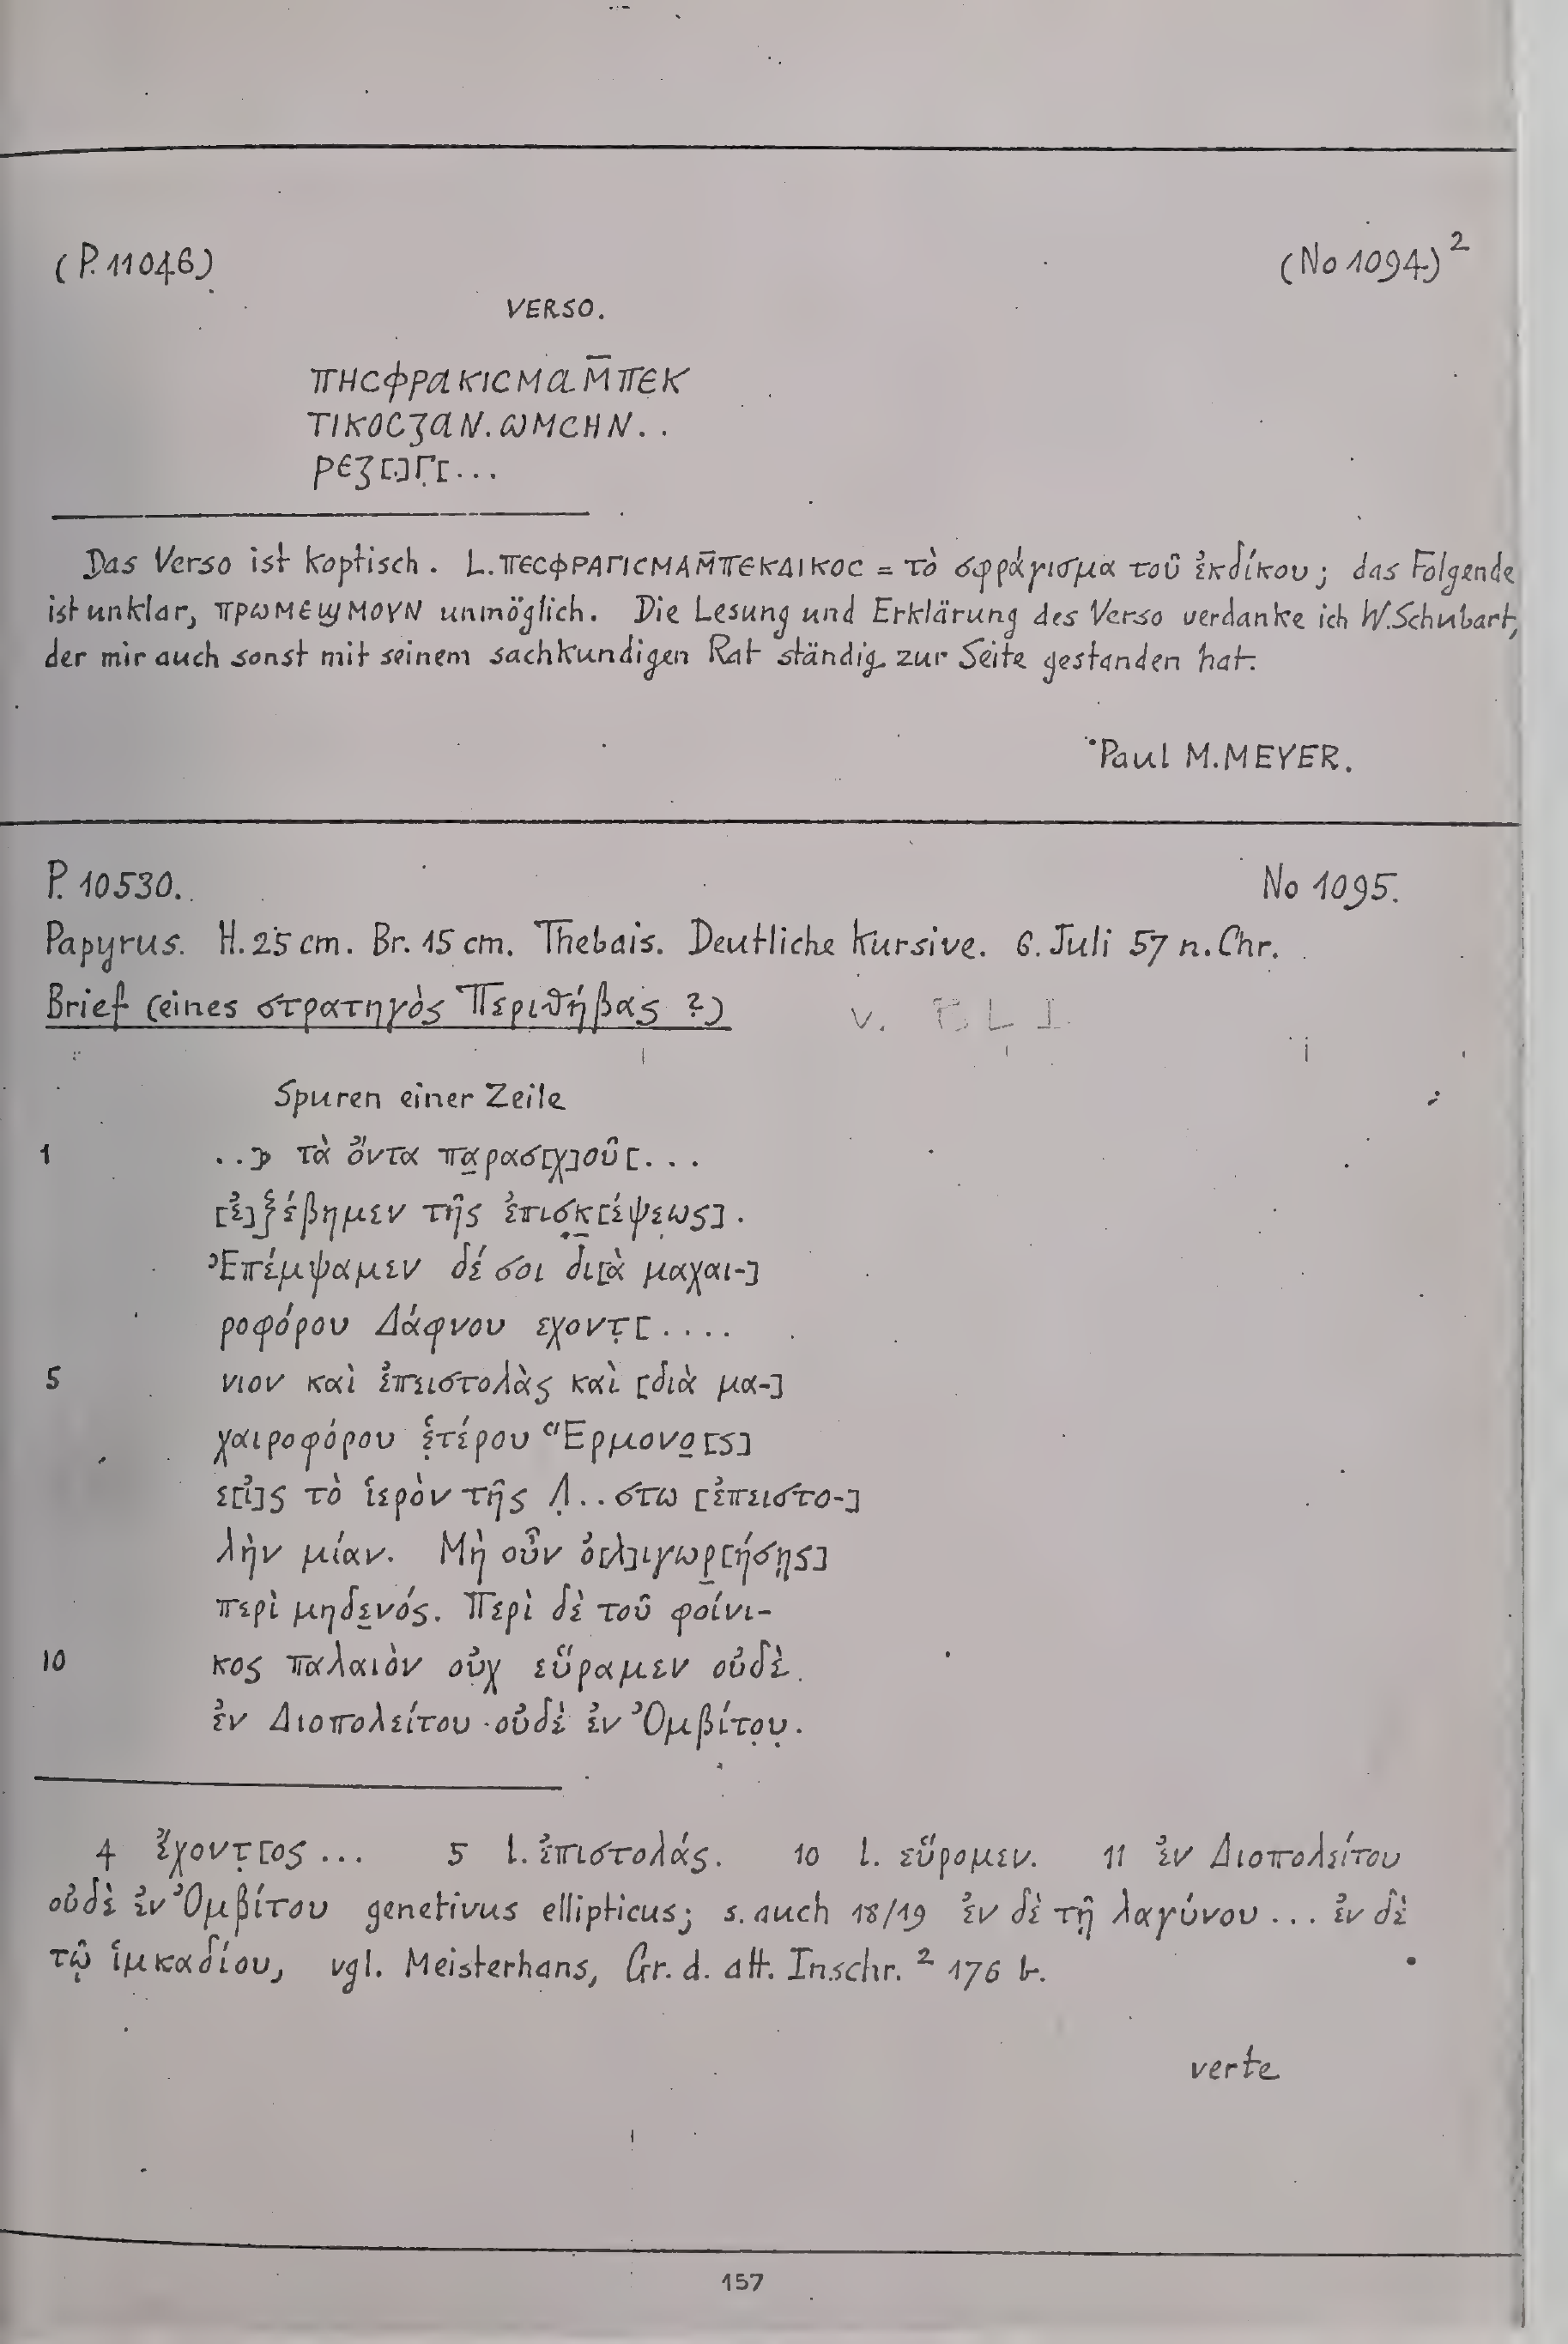 (P. 11046)
(No 1094)²
VERSO.
ⲡⲏⲥⲫⲣⲁⲕⲓⲥⲙⲁⲙ̄ⲡⲉⲕ
ⲧⲓⲕⲟⲥⲍⲁⲛ.ⲱⲙⲥⲏⲛ..
ⲣⲉⲍ[.]ⲅ̣[...
Das Verso ist koptisch. L. ⲡⲉⲥⲫⲣⲁⲅⲓⲥⲙⲁⲙ̄ⲡⲉⲕⲇⲓⲕⲟⲥ = τὸ σφράγισμα τοῦ ἐκδίκου; das Folgende
ist unklar, ⲡⲣⲱⲙⲉϣⲙⲟⲩⲛ unmöglich. Die Lesung und Erklärung des Verso verdanke ich W. Schubart,
der mir auch sonst mit seinem sachkundigen Rat ständig zur Seite gestanden hat.
Paul M. MEYER.
P. 10530.
No 1095.
Papyrus. H. 25 cm. Br. 15 cm. Thebais. Deutliche Kursive. 6. Juli 57 n. Chr.
Brief (eines στρατηγὸς Περιθήβας ?)
v. BL I
Spuren einer Zeile
1 ..] τὰ ὄντα πα̣ρασ[χ]οῦ[...
[ἐ]ξέβημεν τῆς ἐπισ̣κ̣[έψεως].
Ἐπέμψαμεν δέ σοι δι[ὰ μαχαι-]
ροφόρου Δάφνου εχοντ̣[....
5 νιον καὶ ἐπειστολὰς καὶ [διὰ μα-]
χαιροφόρου ἑ̣τέρου Ἑρμονο̣[ς]
ε[ἰ]ς τὸ ἱερὸν τῆς Λ̣..στω [ἐπειστο-]
λὴν μίαν. Μὴ οὖν ὀ[λ]ιγωρ̣[ήσῃς]
περὶ μηδε̣νός. Περὶ δὲ τοῦ φοίνι-
10 κος παλαιὸν οὐχ εὕραμεν οὐδὲ
ἐν Διοπολείτου οὐδὲ ἐν Ὀμβίτο̣υ̣.
4 ἔχοντ̣[ος ... 5 l. ἐπιστολάς. 10 l. εὕρομεν. 11 ἐν Διοπολείτου
οὐδὲ ἐν Ὀμβίτου genetivus ellipticus; s. auch 18/19 ἐν δὲ τῇ λαγύνου ... ἐν δὲ
τῷ ἱμκαδίου, vgl. Meisterhans, Gr. d. att. Inschr. ² 176 b.
verte
157